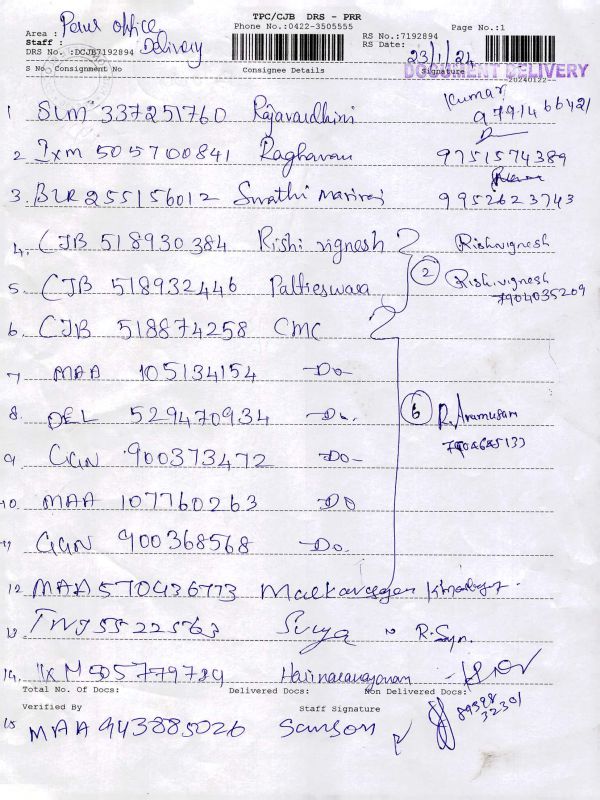 TPC/CJB DRS - PRR
Area : Peur office
Phone No.:0422-3505555
RS No.:7192894
Page No.:1
Staff : Delivery
RS Date: 23/1/24
DRS No. :DCJB7192894
DOCUMENT DELIVERY
S No Consignment No Consignee Details Signature
20240122
1 SLM 337251760 Rajavardhini Kumar
2 IXM 505700841 Raghavan 9751574389
3. BLR 255156012 Swathi Mariraj 9952623743
4. CJB 518930384 Rishi vignesh Rishivignesh
5. CJB 518932446 Patteeswara 2 Rishivignesh
7904035209
6. CJB 518874258 CMC
7 MAA 105134154 -Do-
8. DEL 529470934 -Do- 6 R. Arumugam
9 GGN 900373472 -Do-
10 MAA 107760263 DO
11 GGN 900368568 Do.
12 MAA 570436773
13. Surya R. Syn.
14. IXM 505779789 Harinarayanan
Total No. Of Docs: Delivered Docs: Non Delivered Docs:
89398
32301
Verified By Staff Signature
15 MAA 943885026 Samson